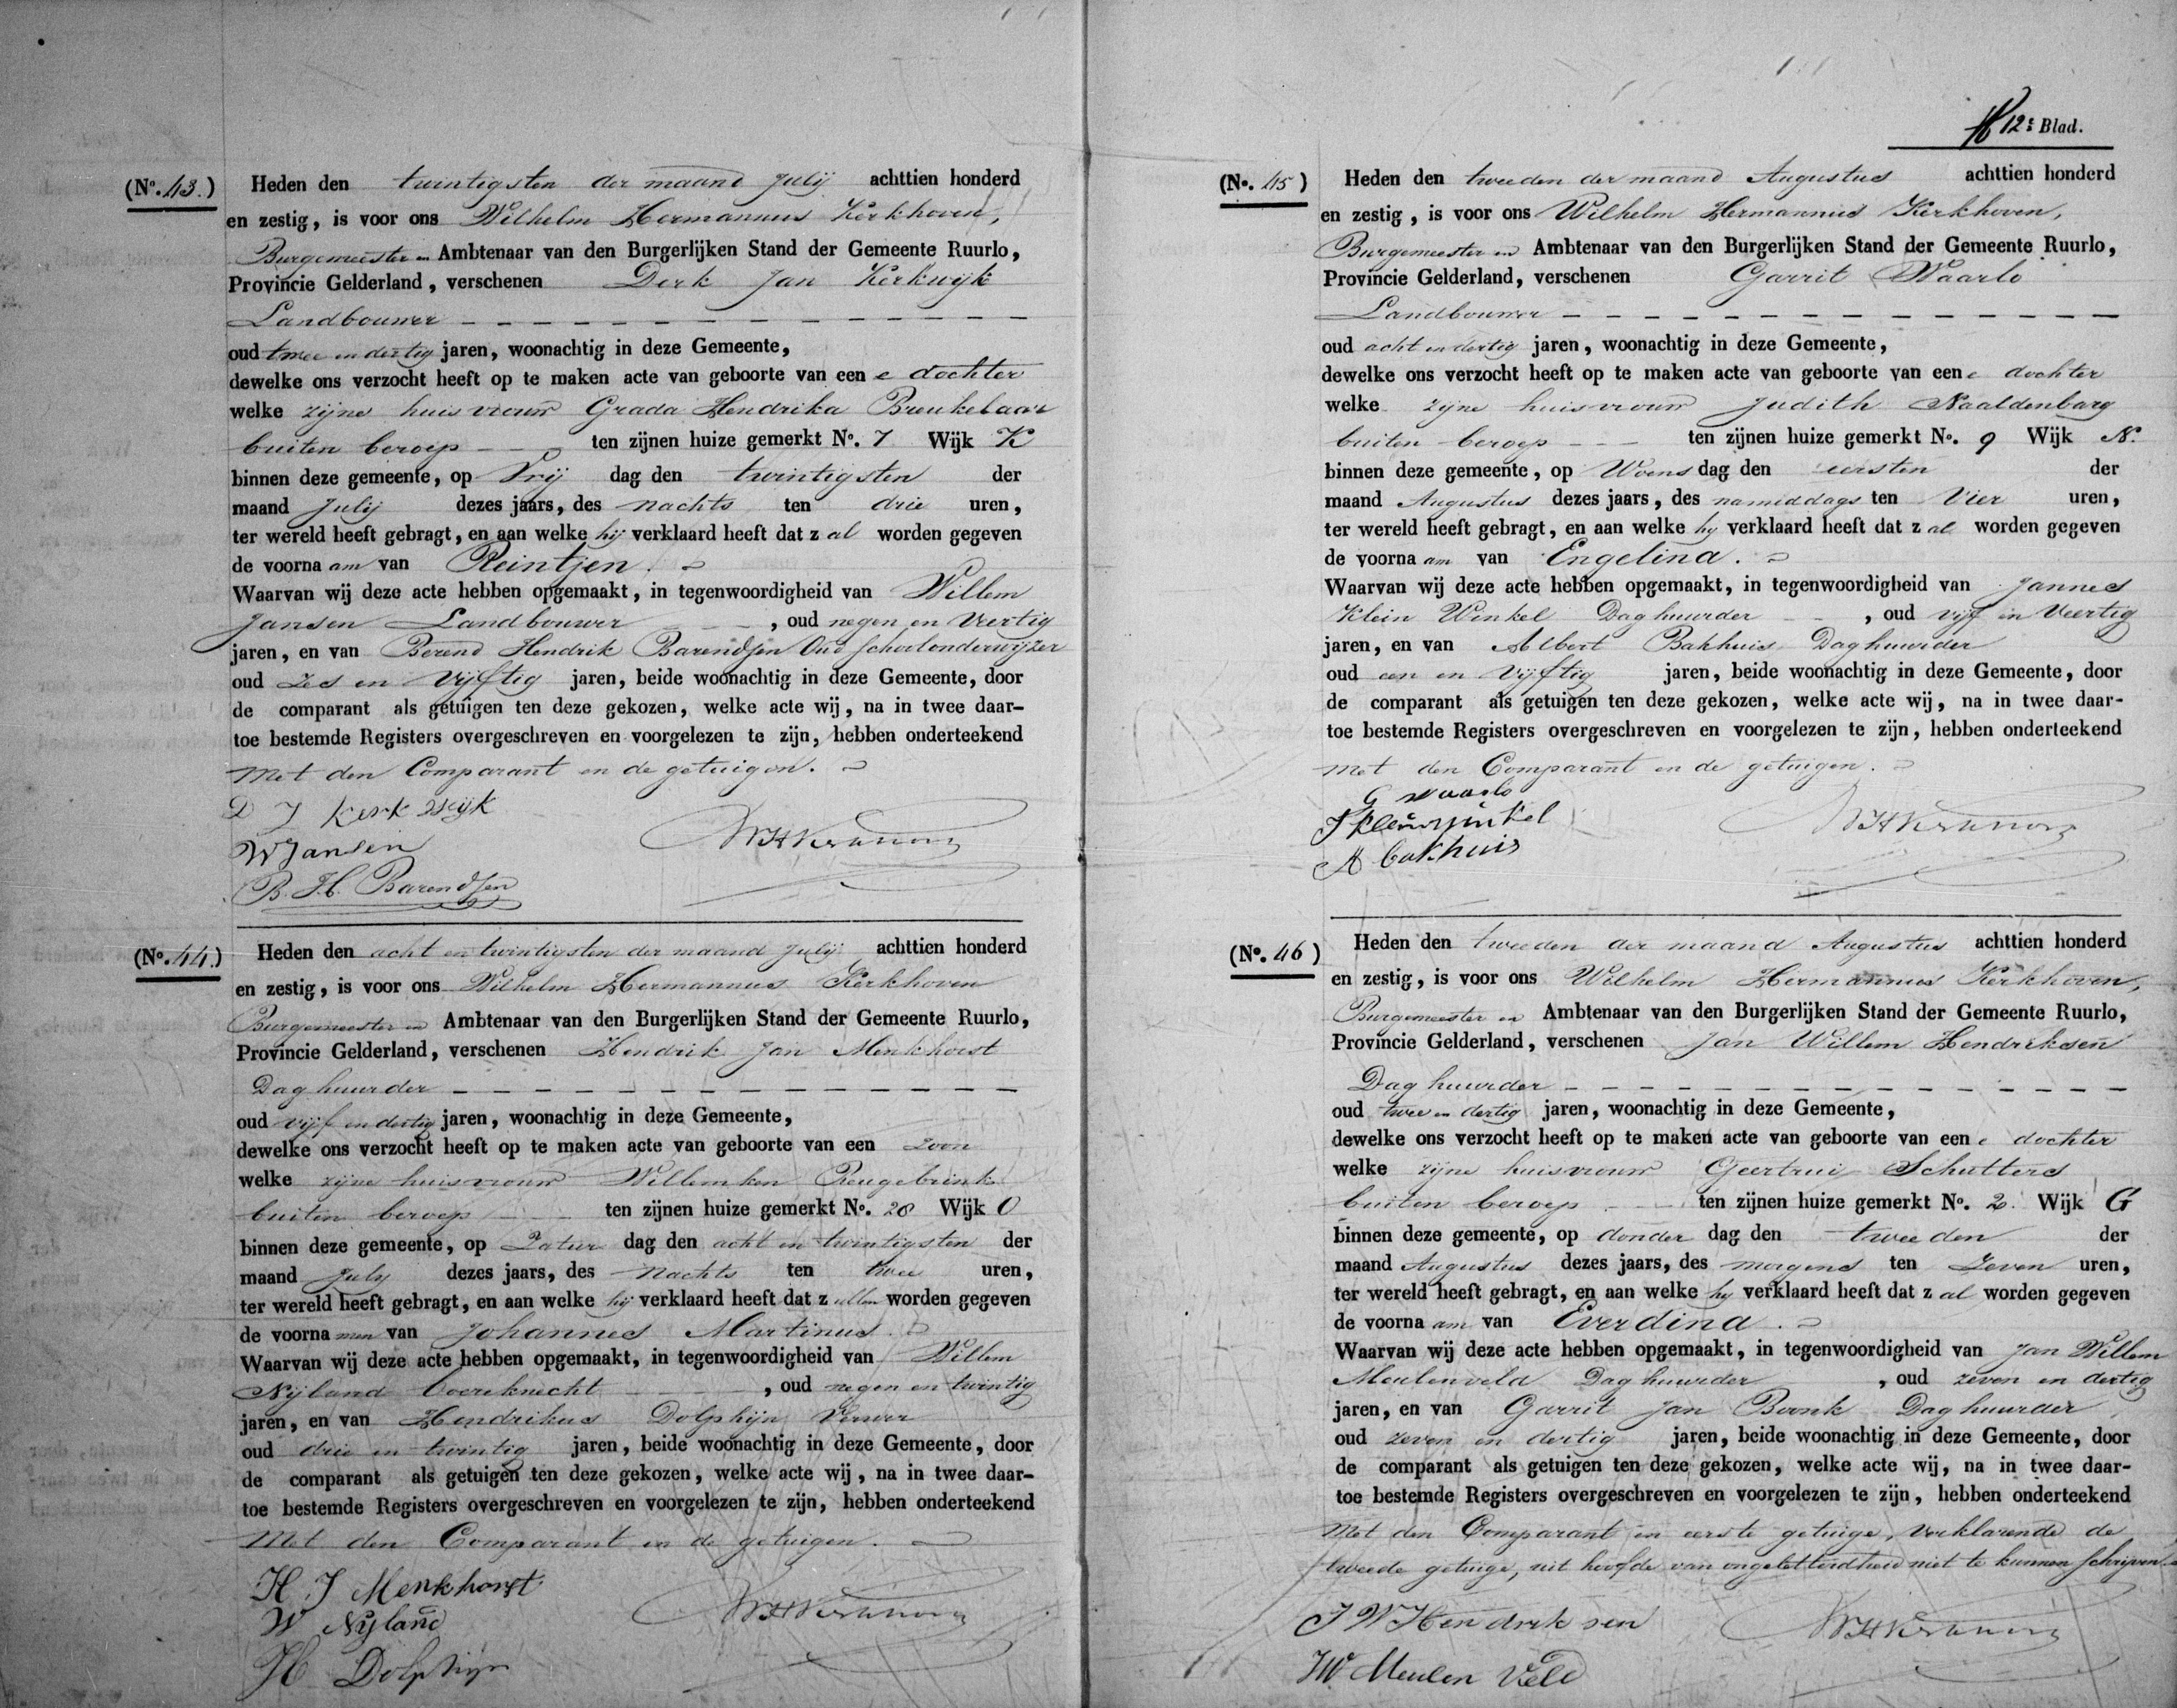 (No. 43.)
Heden den twintigsten der maand Julij achttien honderd
en zestig, is voor ons Wilhelm Hermannus Kerkhoven,
Burgemeester en Ambtenaar van den Burgerlijken Stand der Gemeente Ruurlo,
Provincie Gelderland, verschenen Derk Jan Kerkwijk
Landbouwer
oud twee en dertig jaren, woonachtig in deze Gemeente,
dewelke ons verzocht heeft op te maken acte van geboorte van een e dochter
welke zijne huisvrouw Grada Hendrika Breukelaar
buiten beroep ten zijnen huize gemerkt No. 7 Wijk K
binnen deze gemeente, op Vrij dag den twintigsten der
maand Julij dezes jaars, des nachts ten drie uren,
ter wereld heeft gebragt, en aan welke hij verklaard heeft dat z al worden gegeven
de voorna am van Reintjen.
Waarvan wij deze acte hebben opgemaakt, in tegenwoordigheid van Willem
Jansen Landbouwer , oud negen en veertig
jaren, en van Berend Hendrik Barendsen Oud schoolonderwijzer
oud zes en vijftig jaren, beide woonachtig in deze Gemeente, door
de comparant als getuigen ten deze gekozen, welke acte wij, na in twee daar-
toe bestemde Registers overgeschreven en voorgelezen te zijn, hebben onderteekend
met den Comparant en de getuigen.
D J Kerkwijk
W Jansen
WHKerkhoven
B. H. Barendsen
(No. 44.)
Heden den acht en twintigsten der maand Julij achttien honderd
en zestig, is voor ons Wilhelm Hermannus Kerkhoven
Burgemeester en Ambtenaar van den Burgerlijken Stand der Gemeente Ruurlo,
Provincie Gelderland, verschenen Hendrik Jan Menkhorst
Daghuurder
oud vijf en dertig jaren, woonachtig in deze Gemeente,
dewelke ons verzocht heeft op te maken acte van geboorte van een zoon
welke zijne huisvrouw Willemken Reugebrink
buiten beroep ten zijnen huize gemerkt No. 28 Wijk O
binnen deze gemeente, op Zatur dag den acht en twintigsten der
maand July dezes jaars, des nachts ten twee uren,
ter wereld heeft gebragt, en aan welke hij verklaard heeft dat z ullen worden gegeven
de voorna men van Johannes Martinus.
Waarvan wij deze acte hebben opgemaakt, in tegenwoordigheid van Willem
Nijland Boereknecht , oud negen en twintig
jaren, en van Hendrikus Dolphijn Verwer
oud drie en twintig jaren, beide woonachtig in deze Gemeente, door
de comparant als getuigen ten deze gekozen, welke acte wij, na in twee daar-
toe bestemde Registers overgeschreven en voorgelezen te zijn, hebben onderteekend
Met den Comparant en de getuigen.
H. J Menkhorst
W Nijland
WHKerkhoven
H Dolphijn
12e Blad.
(No. 45)
Heden den tweeden der maand Augustus achttien honderd
en zestig, is voor ons Wilhelm Hermannus Kerkhoven,
Burgemeester en Ambtenaar van den Burgerlijken Stand der Gemeente Ruurlo,
Provincie Gelderland, verschenen Garrit Waarlo
Landbouwer
oud acht en dertig jaren, woonachtig in deze Gemeente,
dewelke ons verzocht heeft op te maken acte van geboorte van een e dochter
welke zijne huisvrouw Judith Naaldenbarg
buiten beroep ten zijnen huize gemerkt No. 9 Wijk N.
binnen deze gemeente, op Woens dag den eersten der
maand Augustus dezes jaars, des namiddags ten Vier uren,
ter wereld heeft gebragt, en aan welke hij verklaard heeft dat z al worden gegeven
de voorna am van Engelina.
Waarvan wij deze acte hebben opgemaakt, in tegenwoordigheid van Jannes
Klein Winkel Daghuurder , oud vijf en Veertig
jaren, en van Albert Bakhuis Daghuurder
oud een en Vijftig jaren, beide woonachtig in deze Gemeente, door
de comparant als getuigen ten deze gekozen, welke acte wij, na in twee daar-
toe bestemde Registers overgeschreven en voorgelezen te zijn, hebben onderteekend
met den Comparant en de getuigen.
G Waarlo
J Kleinwinkel
WHKerkhoven
A bakhuis
(No. 46)
Heden den tweeden der maand Augustus achttien honderd
en zestig, is voor ons Wilhelm Hermannus Kerkhoven,
Burgemeester en Ambtenaar van den Burgerlijken Stand der Gemeente Ruurlo,
Provincie Gelderland, verschenen Jan Willem Hendriksen
Daghuurder
oud twee en dertig jaren, woonachtig in deze Gemeente,
dewelke ons verzocht heeft op te maken acte van geboorte van een e dochter
welke zijne huisvrouw Geertrui Schutters
buiten beroep ten zijnen huize gemerkt No. 2. Wijk G
binnen deze gemeente, op donder dag den tweeden der
maand Augustus dezes jaars, des morgens ten Zeven uren,
ter wereld heeft gebragt, en aan welke hij verklaard heeft dat z al worden gegeven
de voorna am van Everdina.
Waarvan wij deze acte hebben opgemaakt, in tegenwoordigheid van Jan Willem
Meulenveld Daghuurder , oud zeven en dertig
jaren, en van Garrit Jan Bronk Daghuurder
oud zeven en dertig jaren, beide woonachtig in deze Gemeente, door
de comparant als getuigen ten deze gekozen, welke acte wij, na in twee daar-
toe bestemde Registers overgeschreven en voorgelezen te zijn, hebben onderteekend
Met den Comparant en eerste getuige, verklarende de
tweede getuige, uit hoofde van ongeletterdheid niet te kunnen schrijven.
J W Hendriksen
WHKerkhoven
JW Meulen Veld